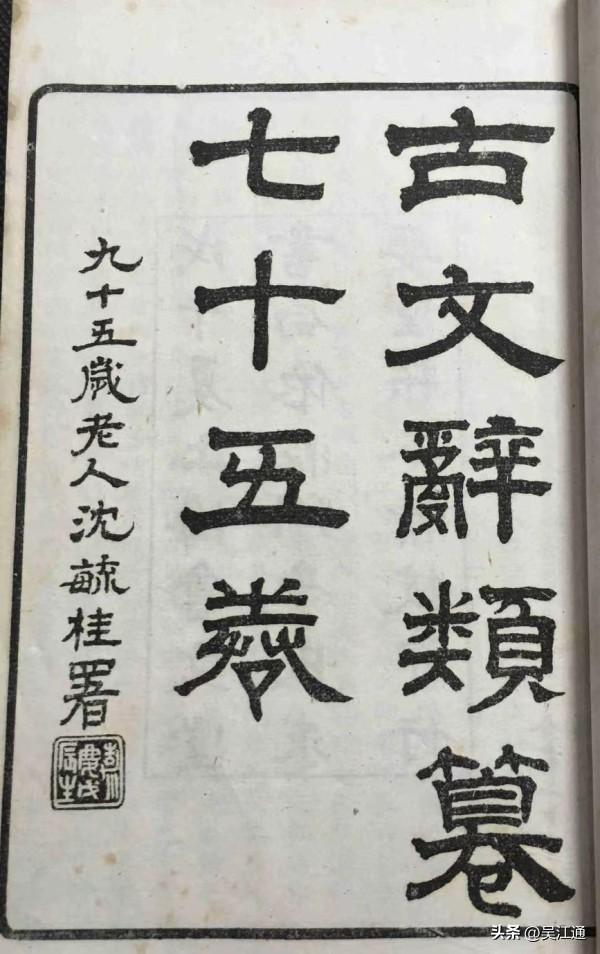 古文辭類篹
七十五卷
九十五歲老人沈毓桂署
头条 @吴江通